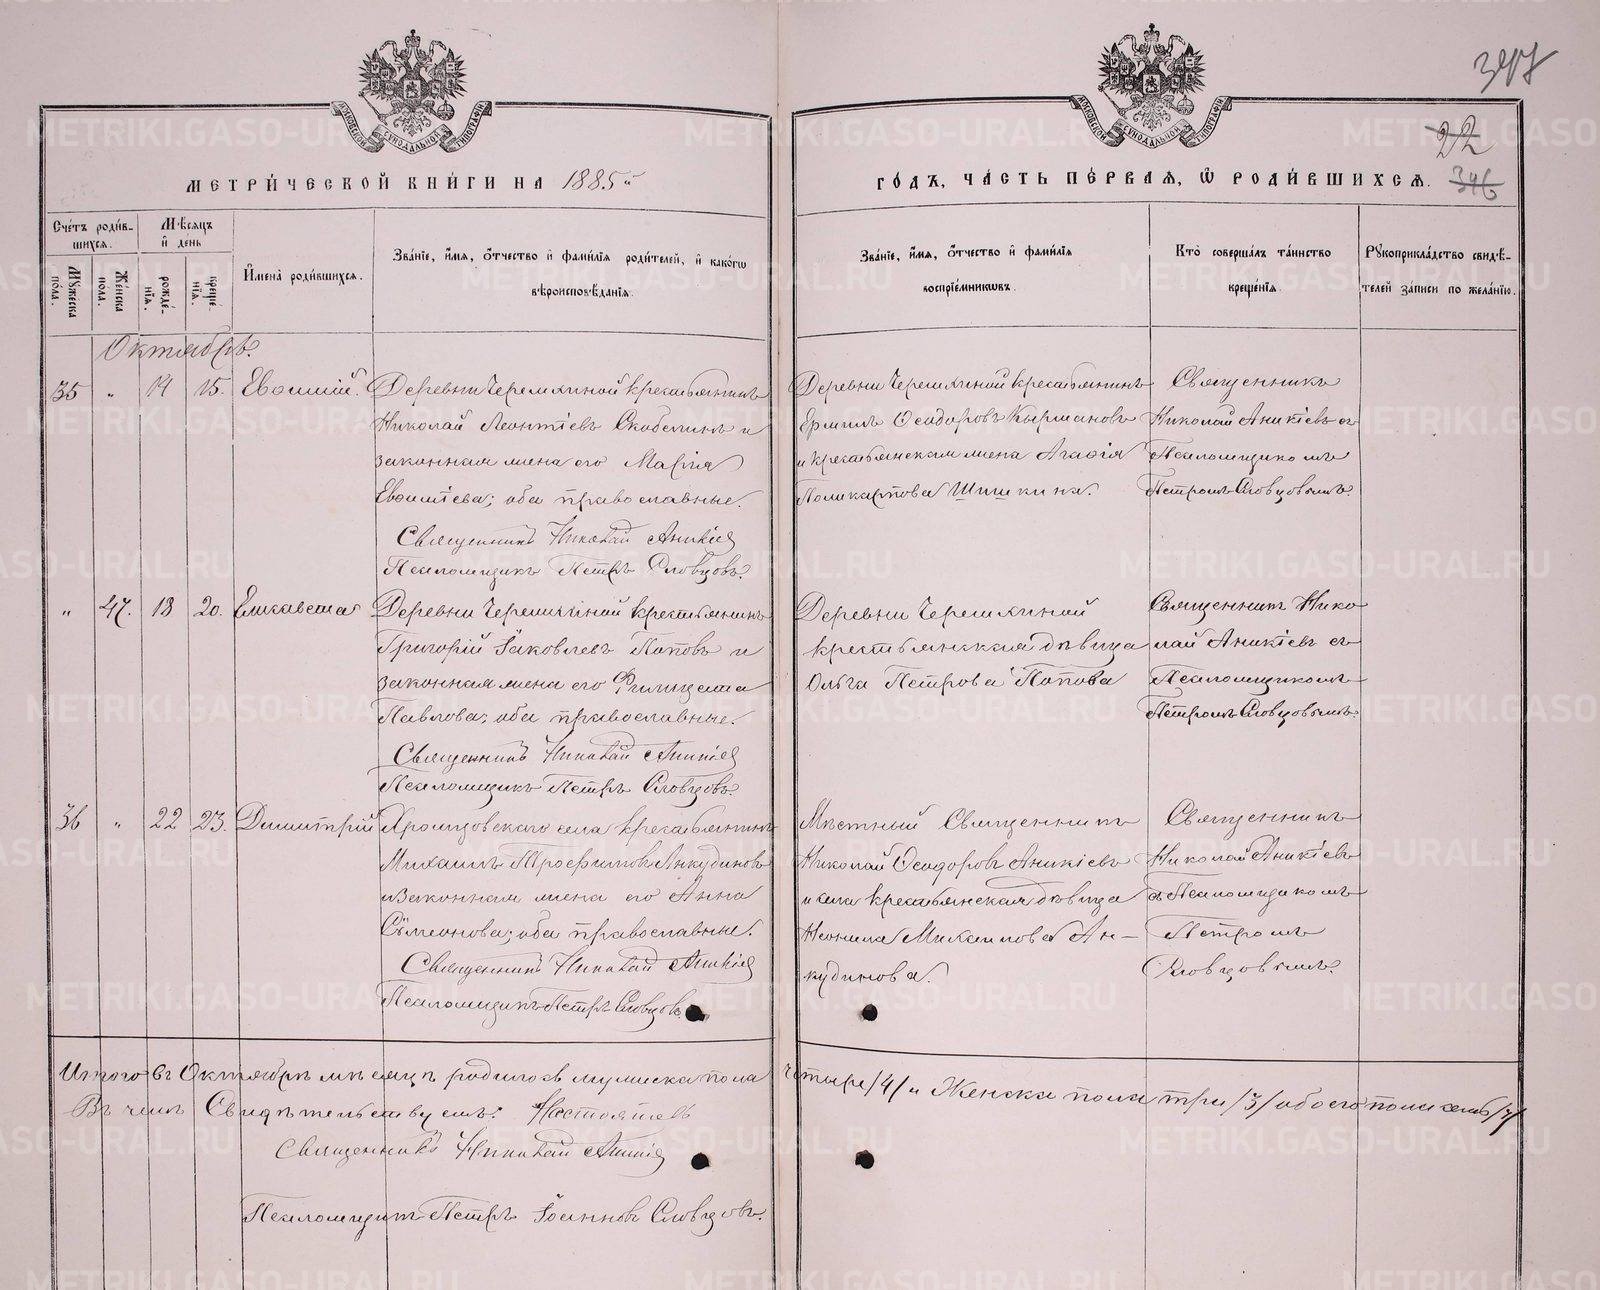 347
22
346
МЕТРИ́ЧЕСКОЙ КНИ́ГИ НА 1885й
ГО́ДЪ, ЧА́СТЬ ПЕ́РВАЯ, Ѿ РОДИ́ВШИХСЯ.
Сче́тъ роди́в-
шихся.
Му́жеска по́ла.
Же́нска пола.
Мѣсяцъ
и́ день
рожде́-
нїя.
креще́-
нїя.
И҆мена̀ роди́вшихся.
Зва́нїе, и҆́мя, ѻ҆́тчество и҆ фами́лїя роди́телей, и҆ како́гѡ
вѣроисповѣ́данїя.
Зва́нїе, и҆́мя, ѻ҆́тчество и҆ фами́лїя
воспрїе́мникѡвъ.
Кто̀ соверша́лъ та́инство
креще́нїя.
Рꙋкоприкла́дство свидѣ́-
телей за́писи по жела́нїю.
Октябрь.
35 " 14 15. Евѳимій.
Деревни Черемхиной крестьянинъ
Николай Леонтіевъ Скобелинъ и
законная жена его Марія
Евѳиміева; оба православные.
Священникъ Николай Аникіев
Псаломщикъ Петръ Словцовъ.
Деревни Черемхиной крестьянинъ
Ермилъ Ѳеодоровъ Кырмановъ
и крестьянская жена Агаѳія
Поликарпова Шишкина.
Священникъ
Николай Аникіевъ съ
Псаломщикомъ
Петромъ Словцовымъ.
" 47. 18 20. Елисавета
Деревни Черемхиной крестьянинъ
Григорій Іаковлевъ Поповъ и
законная жена его Филицата
Павлова; оба православные.
Священникъ Николай Аникіев
Псаломщикъ Петръ Словцовъ.
Деревни Черемхиной
крестьянская дѣвица
Ольга Петрова Попова
Священникъ Нико
лай Аникіевъ съ
Псаломщикомъ
Петромъ Словцовымъ.
36 " 22 23. Димитрій
Хромцовскаго села крестьянинъ
Михаилъ Трофимовъ Анкудиновъ
и законная жена его Анна
Сѵмеонова; оба православные.
Священникъ Николай Аникіев
Псаломщикъ Петръ Словцовъ
Мѣстный Священникъ
Николай Ѳеодоровъ Аникіевъ
и села крестьянская дѣвица
Неонила Михаилова Ан-
кудинова.
Священникъ
Николай Аникіевъ
съ Псаломщикомъ
Петромъ
Словцовымъ.
Итого въ Октябрѣ мѣсяцѣ родилось мужеска пола четыре /4/ и Женска пола три /3/ обоего пола семь /7/
Въ чемъ Свидѣтельствуемъ: Настоятель
Священникъ Николай Аникіев
Псаломщикъ Петръ Іоанновъ Словцовъ.